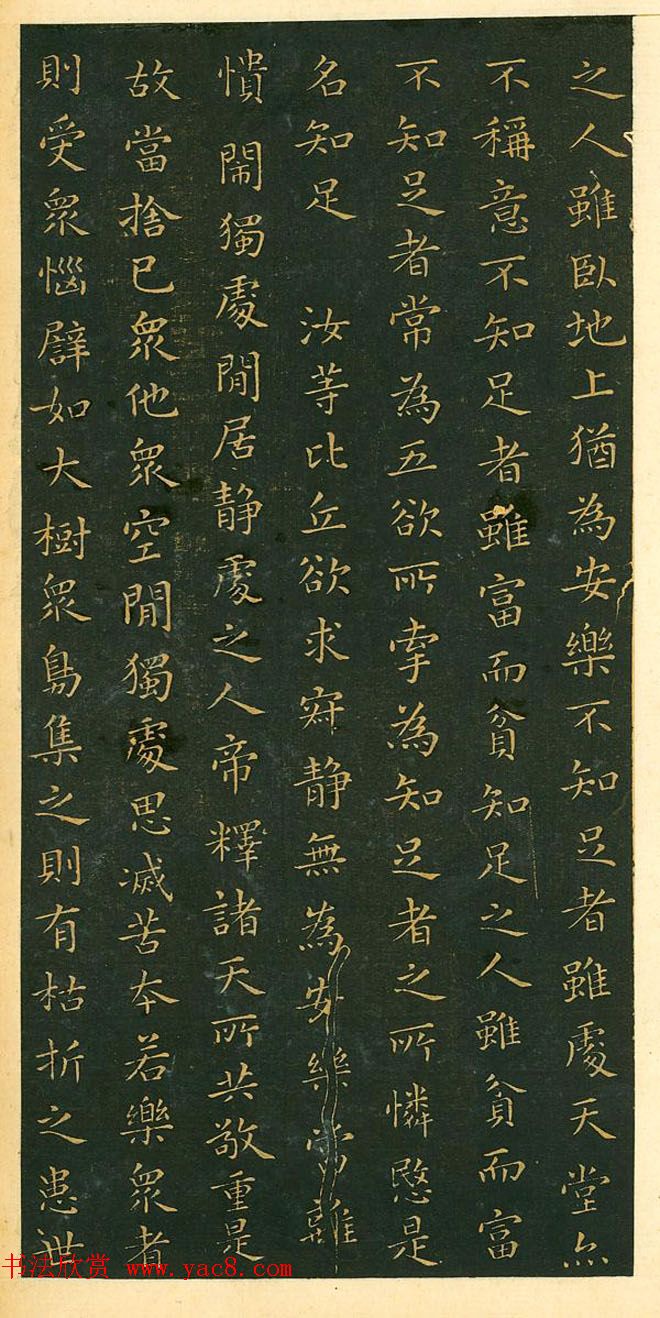 之人雖臥地上猶為安樂不知足者雖處天堂亦
不稱意不知足者雖富而貧知足之人雖貧而富
不知足者常為五欲所牽為知足者之所憐愍是
名知足 汝等比丘欲求寂静無為安樂當離
憒閙獨處閒居静處之人帝釋諸天所共敬重是
故當捨已眾他眾空閒獨處思滅苦本若樂眾者
則受眾惱譬如大樹眾鳥集之則有枯折之患世
书法欣赏 www.yac8.com